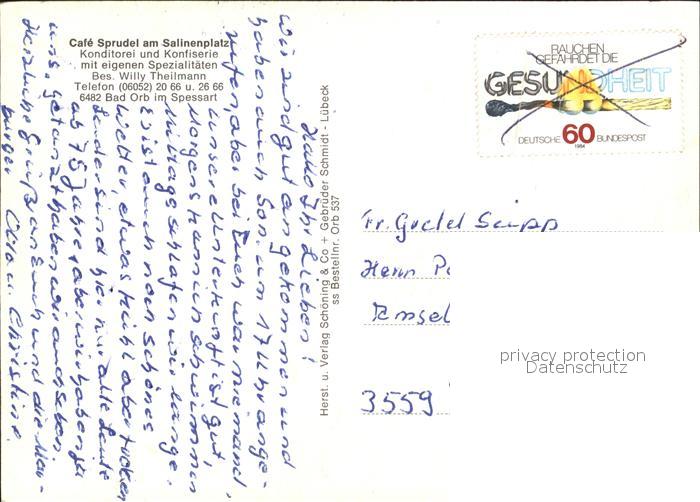 Café Sprudel am Salinenplatz
Konditorei und Konfiserie
mit eigenen Spezialitäten
Bes. Willy Theilmann
Telefon (06052) 20 66 u. 26 66
6482 Bad Orb im Spessart
Hallo Ihr Lieben!
Wir sind gut angekommen und
haben auch Son. um 17 Uhr ange-
rufen, aber bei Euch war niemand,
unsere Unterkunft ist gut,
Morgens kann ich schwimmen
Mittags schlafen wir lange.
Es ist auch noch schönes
Wetter, etwas kühl aber trocken
Leider sind hier nur alte Leute
ab 75 Jahre aber wir haben ja
uns. getanzt haben wir auch schon.
Herzliche Grüße an Euch und die
burger Otto u. Christine.
Herst. u. Verlag Schöning & Co + Gebrüder Schmidt - Lübeck
ss Bestellnr. Orb 537
RAUCHEN
GEFÄHRDET DIE
GESUNDHEIT
DEUTSCHE 60 BUNDESPOST
1984
Fr. Gretel Seipp
Herrn
3559
privacy protection
Datenschutz